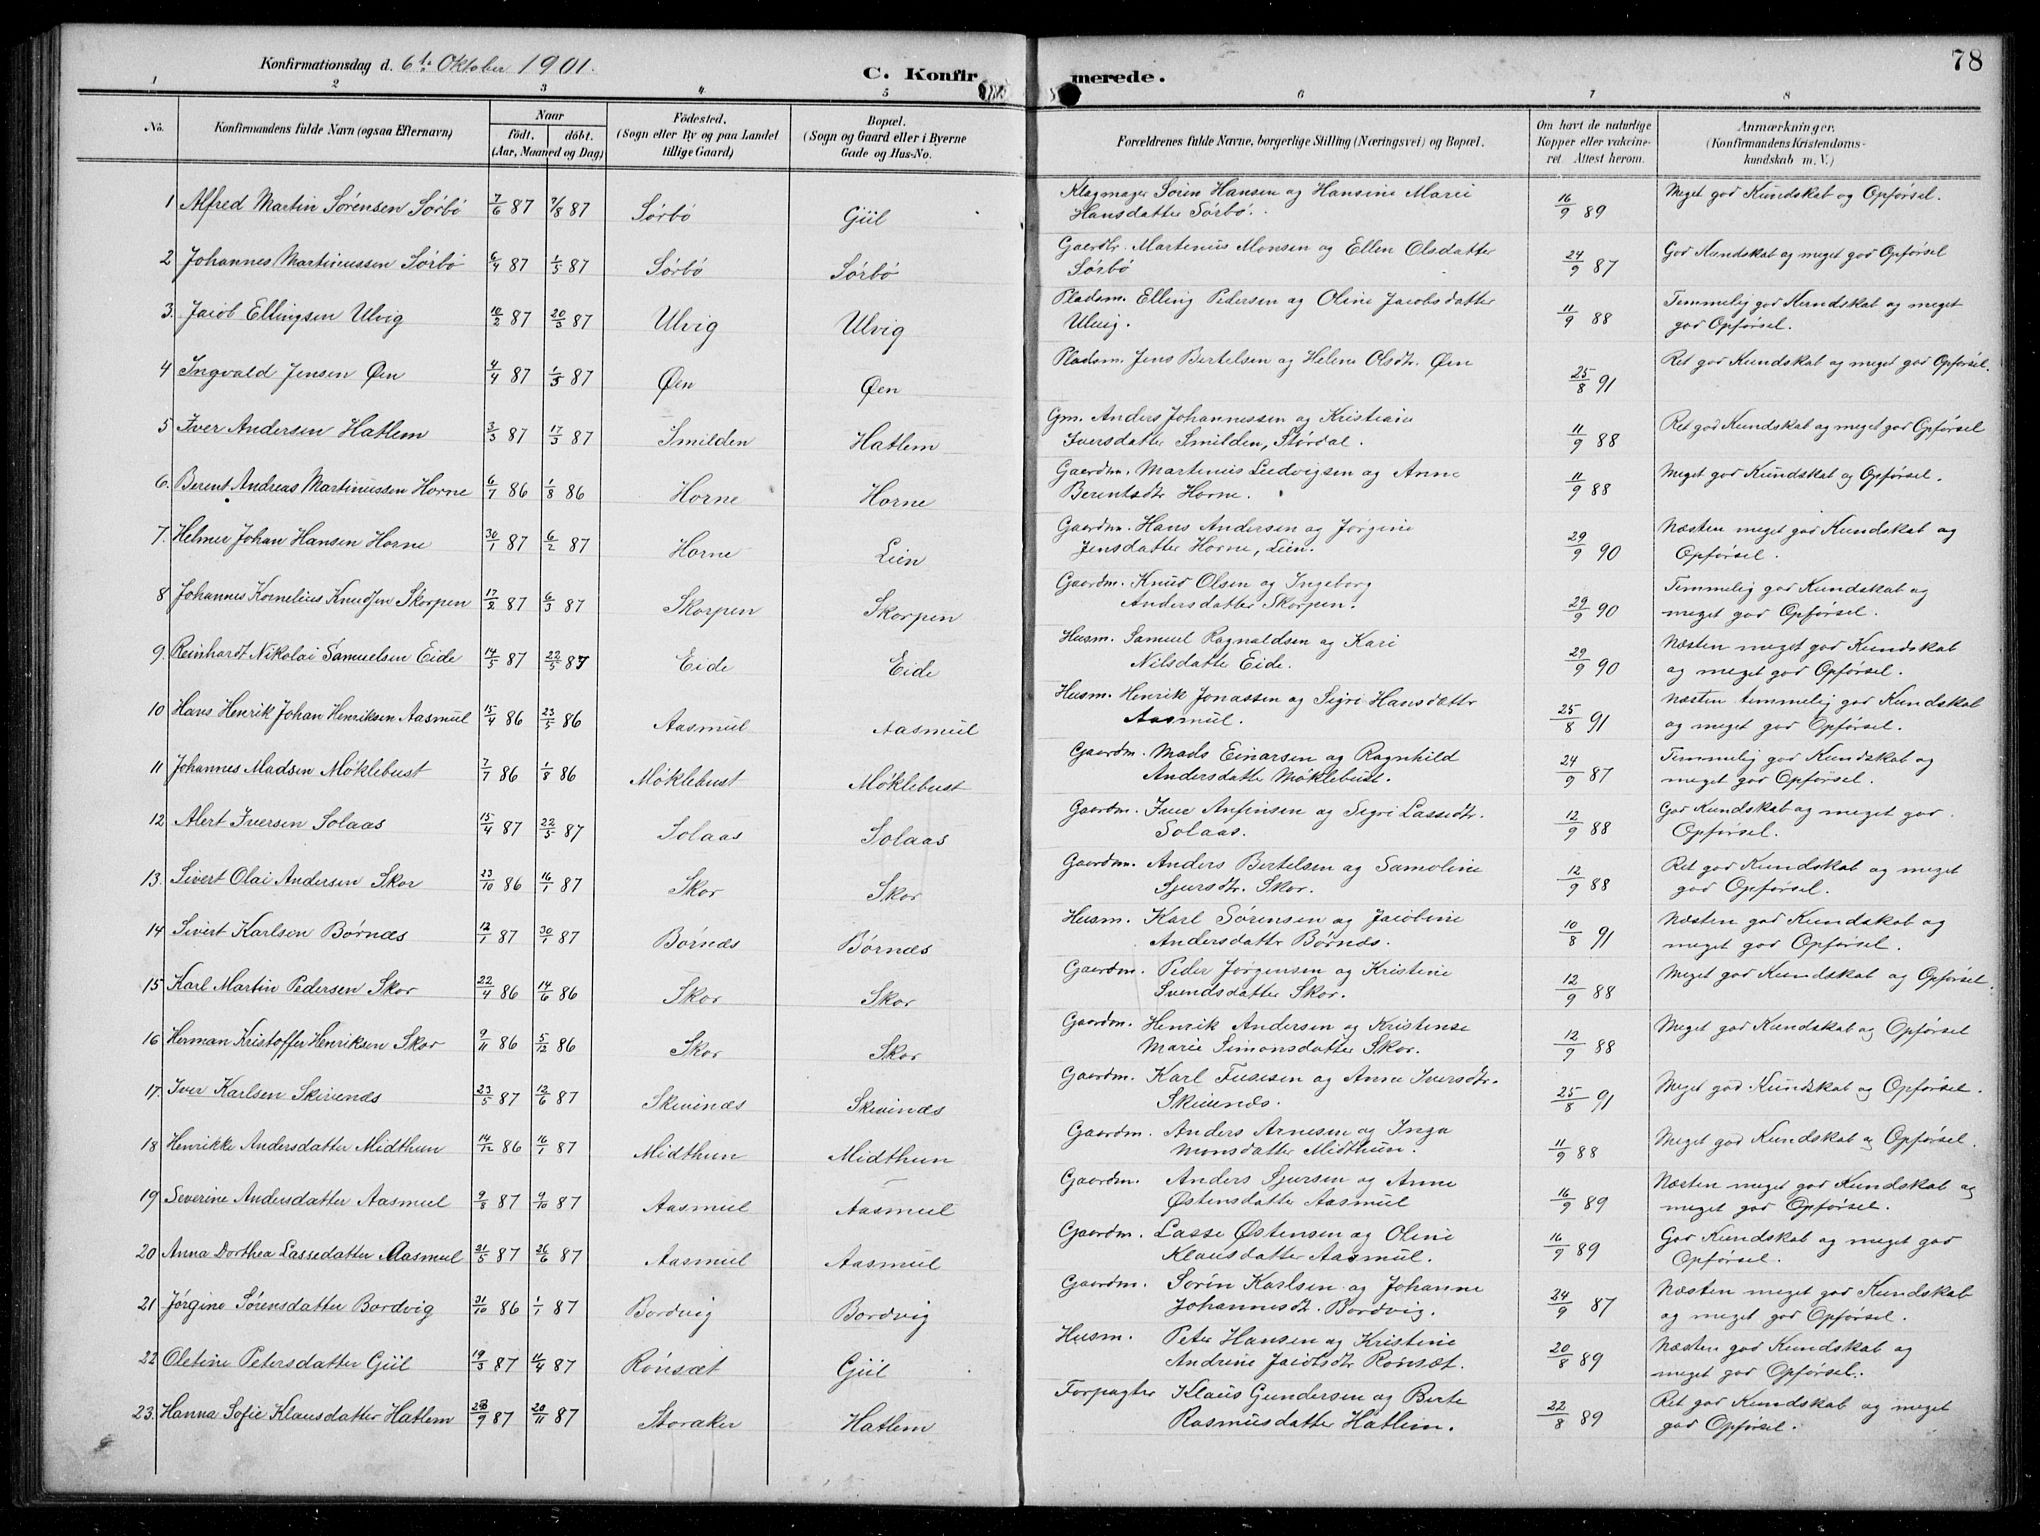 78
Konfirmationsdag d. 6te Oktober 1901.
C. Konfirmerede.
1 2 3 4 5 6 7 8
No. Konfirmandens fulde Navn (ogsaa Efternavn) Naar født. døbt. (Aar, Maaned og Dag) Fødested. (Sogn eller By og paa Landet tillige Gaard) Bopæl. (Sogn og Gaard eller i Byerne Gade og Hus-No. Forældrenes fulde Navne, borgerlige Stilling (Næringsvei) og Bopæl. Om havt de naturlige Kopper eller vakcineret. Attest herom. Anmærkninger. (Konfirmandens Kristendomskundskab m. V.)
1 Alfred Martin Sørensen Sørbø 7/6 87 7/8 87 Sørbø Giil Klagmager Sørin Hansen og Hansine Marei
Hansdatter Sørbø. 16/9 89 Meget god Kundskab og Opførsel.
2 Johannes Martinussen Sørbø 6/4 87 1/5 87 Sørbø Sørbø Gaardbr. Martinus Monsen og Ellen Olsdatter
Sørbø 24/9 87 God Kundskab og meget god Opførsel
3. Jacob Ellingsen Ulvig 10/2 87 20/3 87 Ulvig Ulvig Pladsm. Elling Pedersen og Oline Jacobsdatter
Ulvig. 11/9 88 Temmelig god Kundskab og meget
god Opførsel.
4 Ingvald Jensen Øen 4/4 87 1/5 87 Øen Øen Pladsm. Jens Bertelsen og Helene Olsdtr. Øen 25/8 91 Ret god Kundskab og meget god Opførsel.
5 Iver Andersen Hatlem 3/3 87 17/3 87 Smilden Hatlem Gm. Anders Johannessen og Kristiane
Iversdatter Smilden, Stordal. 11/9 88 Ret god Kundskab og meget god Opførsel
6. Berent Andreas Martinussen Horne 6/7 86 1/8 86 Horne Horne Gaardm. Martinus Ludvigsen og Anne
Berentsdtr Horne. 11/9 88 Meget god Kundskab og Opførsel.
7. Helmer Johan Hansen Horne 30/1 87 6/2 87 Horne Lien Gaardm. Hans Andersen og Jørgine
Jensdatter Horne, Lien. 29/9 90 Næsten meget god Kundskab og
Opførsel.
8 Johannes Kornelius Knudsen Skorpen 17/2 87 6/3 87 Skorpen Skorpen Gaardm. Knud Olsen og Ingeborg
Andersdatter Skorpen. 29/9 90 Temmelig god Kundskab og
meget god Opførsel.
9. Reinhardt Nikolai Samuelsen Eide 14/5 87 22/5 87 Eide Eide Husm. Samuel Ragnaldsen og Kari
Nilsdatte Eide. 29/9 90 Næsten meget god Kundskab
og meget god Opførsel.
10 Hans Henrik Johan Henriksen Aasmul 15/4 86 23/5 86 Aasmul Aasmul Husm. Henrik Jonassen og Sigri Hansdattr
Aasmul. 25/8 91 Næsten temmelig god Kundskab
og meget god Opførsel.
11 Johannes Madsen Møklebust 7/7 86 1/8 86 Møklebust Møklebust Gaardm. Mads Einarsen og Ragnhild
Andersdatter Møklebust. 24/9 87 Temmelig god Kundskab og
meget god Opførsel.
12 Alert Iversen Solaas 15/4 87 22/5 87 Solaas Solaas Gaardm. Iver Anfinsen og Sigri Lassedtr.
Solaas. 12/9 88 God Kundskab og meget god
Opførsel.
13. Sivert Olai Andersen Skor 23/10 86 16/1 87 Skor Skor Gaardm. Anders Bertelsen og Samoline
Sjursdtr. Skor. 12/9 88 Ret god Kundskab og meget
god Opførsel.
14 Sivert Karlsen Børnæs 12/1 87 30/1 87 Børnæs Børnæs Husm. Karl Sørensen og Jacobine
Andersdattr Børnæs. 10/8 91 Næsten god Kundskab og
meget god Opførsel.
15 Karl Martin Pedersen Skor 22/4 86 14/6 86 Skor Skor Gaardm. Peder Jørgensen og Kristine
Svendsdatter Skor. 12/9 88 Meget god Kundskab og Opførsel.
16 Herman Kristoffer Henriksen Skor 9/11 86 5/12 86 Skor Skor Gaardm. Henrik Andersen og Kristense
Marie Simonsdatter Skor. 12/9 88 Meget god Kundskab og Opførsel
17. Iver Karlsen Skivenæs 23/5 87 12/6 87 Skivinæs Skivinæs Gaardm. Karl og Anne Iversdtr.
Skivenæs. 25/8 91 Meget god Kundskab og Opførsel.
18 Henrikke Andersdatter Midthun 14/12 86 16/1 87 Midthun Midthun Gaardm. Anders Arnesen og Inga
Monsdatter Midthun. 11/9 88 Meget god Kundskab og Opførsel.
19 Severine Andersdatter Aasmul 9/8 87 9/10 87 Aasmul Aasmul Gaardm. Anders Sjursen og Anne
Østensdatter Aasmul 16/9 89 Næsten meget god Kundskab og
meget god Opførsel.
20 Anna Dorthea Lassedatter Aasmul 31/5 87 26/6 87 Aasmul Aasmul Gaardm. Lasse Østensen og Oline
Klausdatter Aasmul. 16/9 89 God Kundskab og meget god
Opførsel.
21 Jørgine Sørensdatter Bordvig 31/10 86 1/1 87 Bordvig Bordvig Gaardm. Sørin Karlsen og Johanne
Johannesdtr. Bordvig. 24/9 87 Næsten meget god Kundskab
og meget god Opførsel.
22 Oletine Petersdatter Giil 19/3 87 11/4 87 Rönsæt Giil Husm. Peter Hansen og Kristine
Andrine Rönsæt. 20/8 89 Næsten god Kundskab og
meget god Opførsel.
23. Hanna Sofie Klausdatter Hatlem 28/9 87 20/11 87 Storaker Hatlem Forpagter Klaus Gundersen og Birte
Rasmusdatter Hatlem. 22/8 89 Ret god Kundskab og meget
god Opførsel.